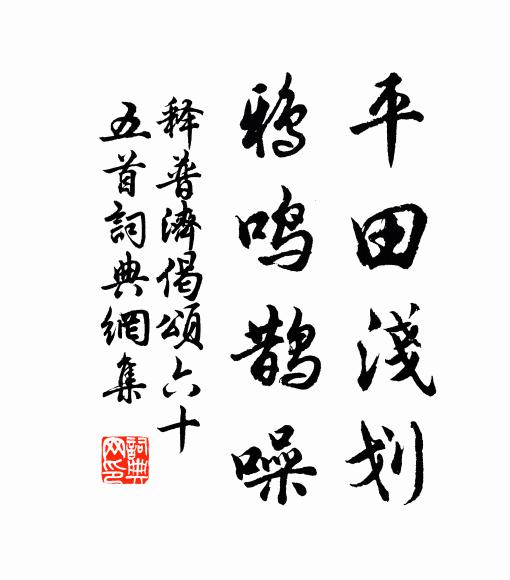 平田淺划
鸦鸣鹊噪
释普濟偈頌六十
五首詞典網集
詞典网印